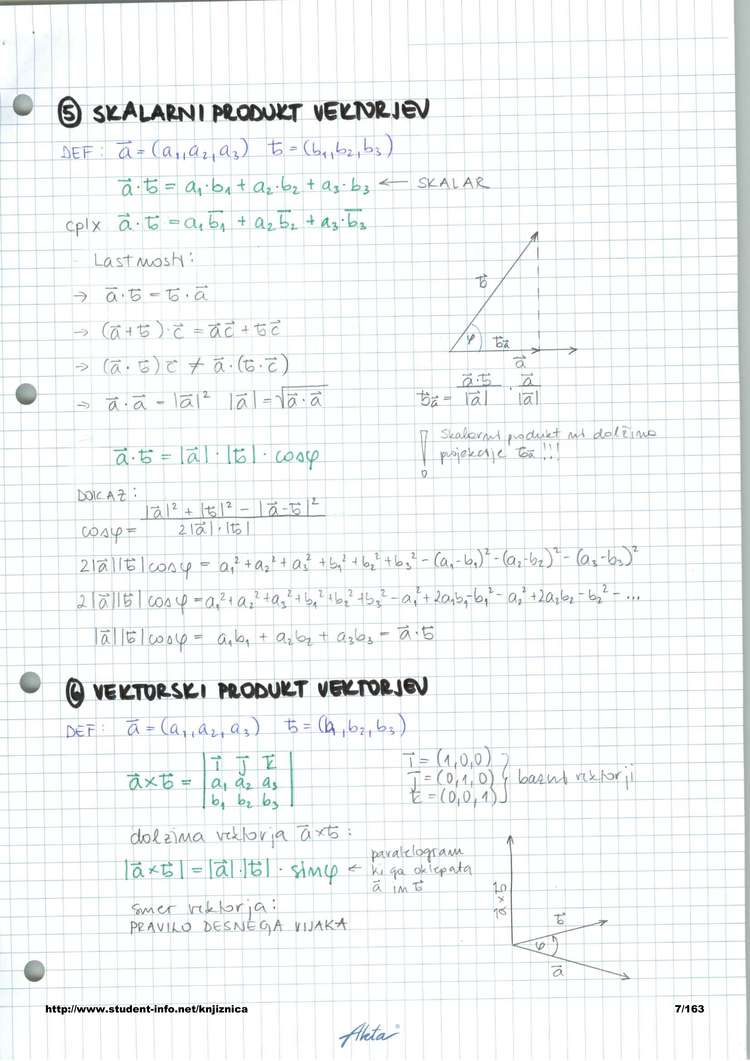 ⑤ SKALARNI PRODUKT VEKTORJEV
DEF: a⃗ = (a₁, a₂, a₃)  b⃗ = (b₁, b₂, b₃)
a⃗·b⃗ = a₁·b₁ + a₂·b₂ + a₃·b₃ ← SKALAR
cplx a⃗·b⃗ = a₁b̅₁ + a₂b̅₂ + a₃·b̅₃
Lastnosti:
→ a⃗·b⃗ = b⃗·a⃗
→ (a⃗+b⃗)·c⃗ = a⃗c⃗ + b⃗c⃗
→ (a⃗·b⃗)c⃗ ≠ a⃗·(b⃗·c⃗)
→ a⃗·a⃗ = |a⃗|²  |a⃗| = √(a⃗·a⃗)
b⃗
φ
b⃗a⃗
a⃗
b⃗a⃗ = (a⃗·b⃗)/|a⃗| · a⃗/|a⃗|
! Skalarni produkt ni dolžina
projekcije b⃗a⃗ !!!
a⃗·b⃗ = |a⃗|·|b⃗|·cosφ
DOKAZ:
cosφ = (|a⃗|² + |b⃗|² - |a⃗-b⃗|²)/(2|a⃗|·|b⃗|)
2|a⃗||b⃗|cosφ = a₁² + a₂² + a₃² + b₁² + b₂² + b₃² - (a₁-b₁)² - (a₂-b₂)² - (a₃-b₃)²
2|a⃗||b⃗|cosφ = a₁² + a₂² + a₃² + b₁² + b₂² + b₃² - a₁² + 2a₁b₁ - b₁² - a₂² + 2a₂b₂ - b₂² - ...
|a⃗||b⃗|cosφ = a₁b₁ + a₂b₂ + a₃b₃ = a⃗·b⃗
⑥ VEKTORSKI PRODUKT VEKTORJEV
DEF: a⃗ = (a₁, a₂, a₃)  b⃗ = (b₁, b₂, b₃)
a⃗×b⃗ = | i⃗ j⃗ k⃗ |
| a₁ a₂ a₃ |
| b₁ b₂ b₃ |
i⃗ = (1,0,0)
j⃗ = (0,1,0) } bazni vektorji
k⃗ = (0,0,1)
dolžina vektorja a⃗×b⃗:
|a⃗×b⃗| = |a⃗|·|b⃗|·sinφ ← paralelogram
ki ga oklepata
a⃗ in b⃗
smer vektorja:
PRAVILO DESNEGA VIJAKA
a⃗×b⃗
b⃗
φ
a⃗
http://www.student-info.net/knjiznica
7/163
Akta